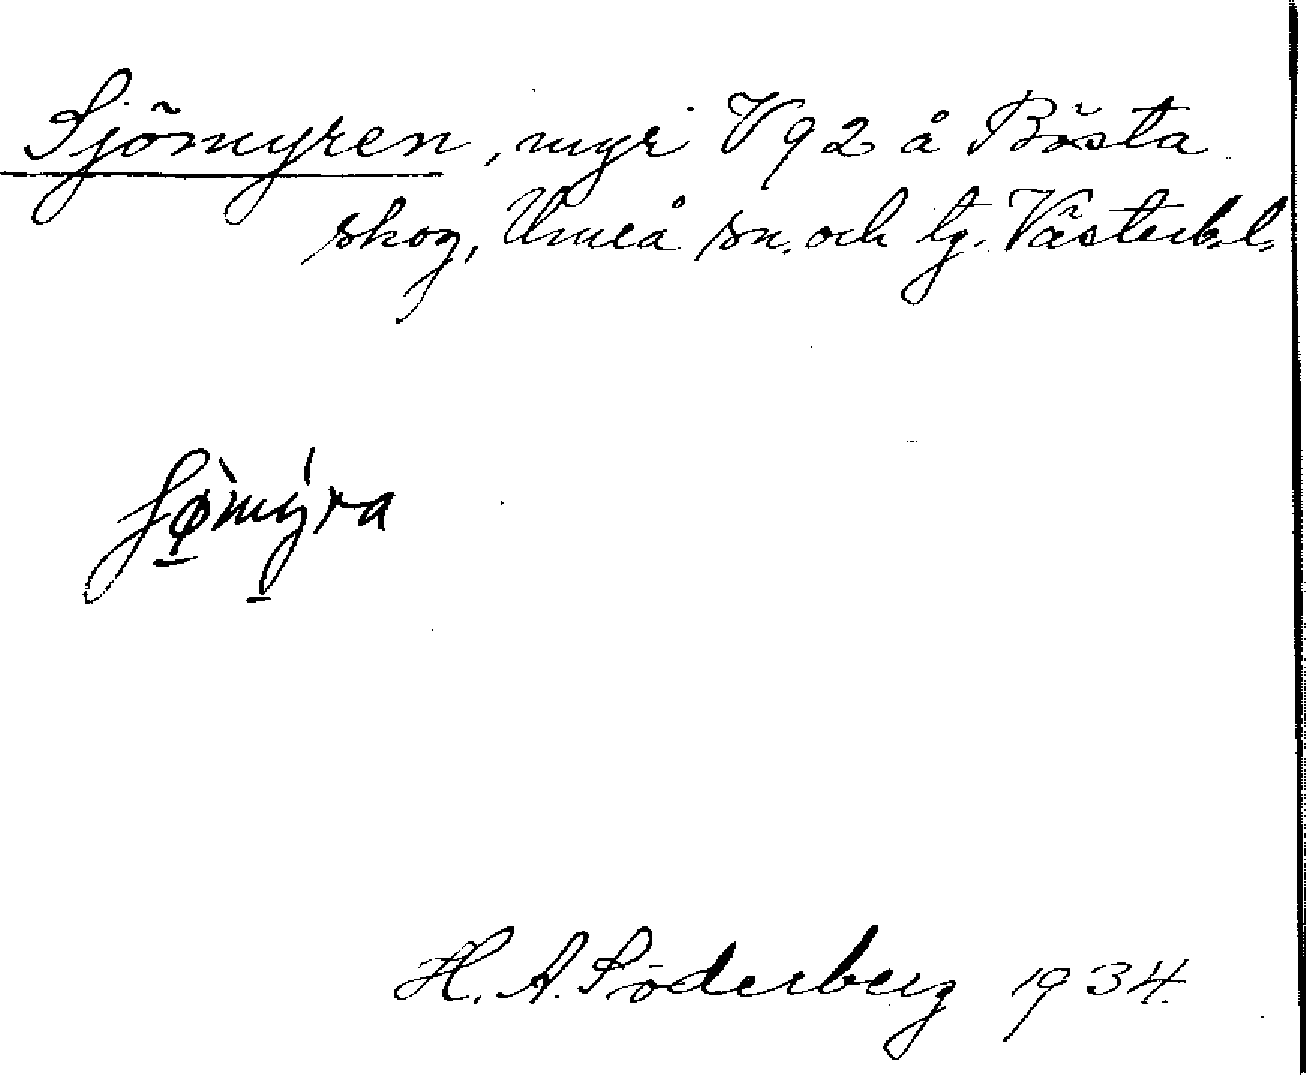 Sjömyren, myr V 92 å Bösta
skog, Umeå sn. och tg. Västerb. l.
H. A. Söderberg 1934.